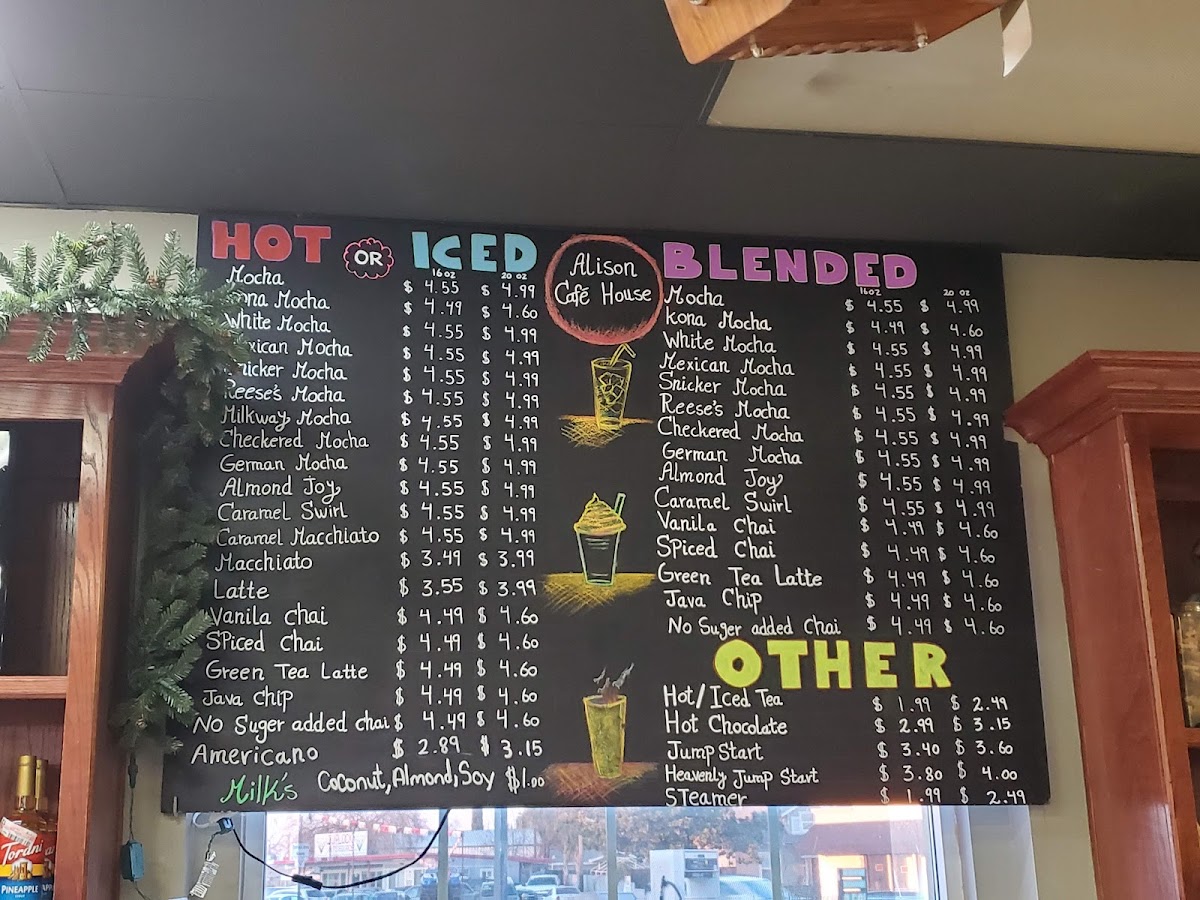 HOT OR ICED
16 oz 20 oz
Mocha $ 4.55 $ 4.99
ona Mocha $ 4.49 $ 4.60
White Mocha $ 4.55 $ 4.99
exican Mocha $ 4.55 $ 4.99
nicker Mocha $ 4.55 $ 4.99
Reese's Mocha $ 4.55 $ 4.99
Milkway Mocha $ 4.55 $ 4.99
Checkered Mocha $ 4.55 $ 4.99
German Mocha $ 4.55 $ 4.99
Almond Joy $ 4.55 $ 4.99
Caramel Swirl $ 4.55 $ 4.99
Caramel Macchiato $ 4.55 $ 4.99
Macchiato $ 3.49 $ 3.99
Latte $ 3.55 $ 3.99
Vanila Chai $ 4.49 $ 4.60
SPiced Chai $ 4.49 $ 4.60
Green Tea Latte $ 4.49 $ 4.60
Java Chip $ 4.49 $ 4.60
No Suger added chai $ 4.49 $ 4.60
Americano $ 2.89 $ 3.15
Milk's Coconut, Almond, Soy $1.00
Alison
Café House
BLENDED
16oz 20 oz
Mocha $ 4.55 $ 4.99
Kona Mocha $ 4.49 $ 4.60
White Mocha $ 4.55 $ 4.99
Mexican Mocha $ 4.55 $ 4.99
Snicker Mocha $ 4.55 $ 4.99
Reese's Mocha $ 4.55 $ 4.99
Checkered Mocha $ 4.55 $ 4.99
German Mocha $ 4.55 $ 4.99
Almond Joy $ 4.55 $ 4.99
Caramel Swirl $ 4.55 $ 4.99
Vanila Chai $ 4.49 $ 4.60
SPiced Chai $ 4.49 $ 4.60
Green Tea Latte $ 4.49 $ 4.60
Java Chip $ 4.49 $ 4.60
No Suger added Chai $ 4.49 $ 4.60
OTHER
Hot/Iced Tea $ 1.99 $ 2.49
Hot Chocolate $ 2.99 $ 3.15
Jump Start $ 3.40 $ 3.60
Heavenly Jump Start $ 3.80 $ 4.00
STeamer $ 1.99 $ 2.49
Torani
PINEAPPLE